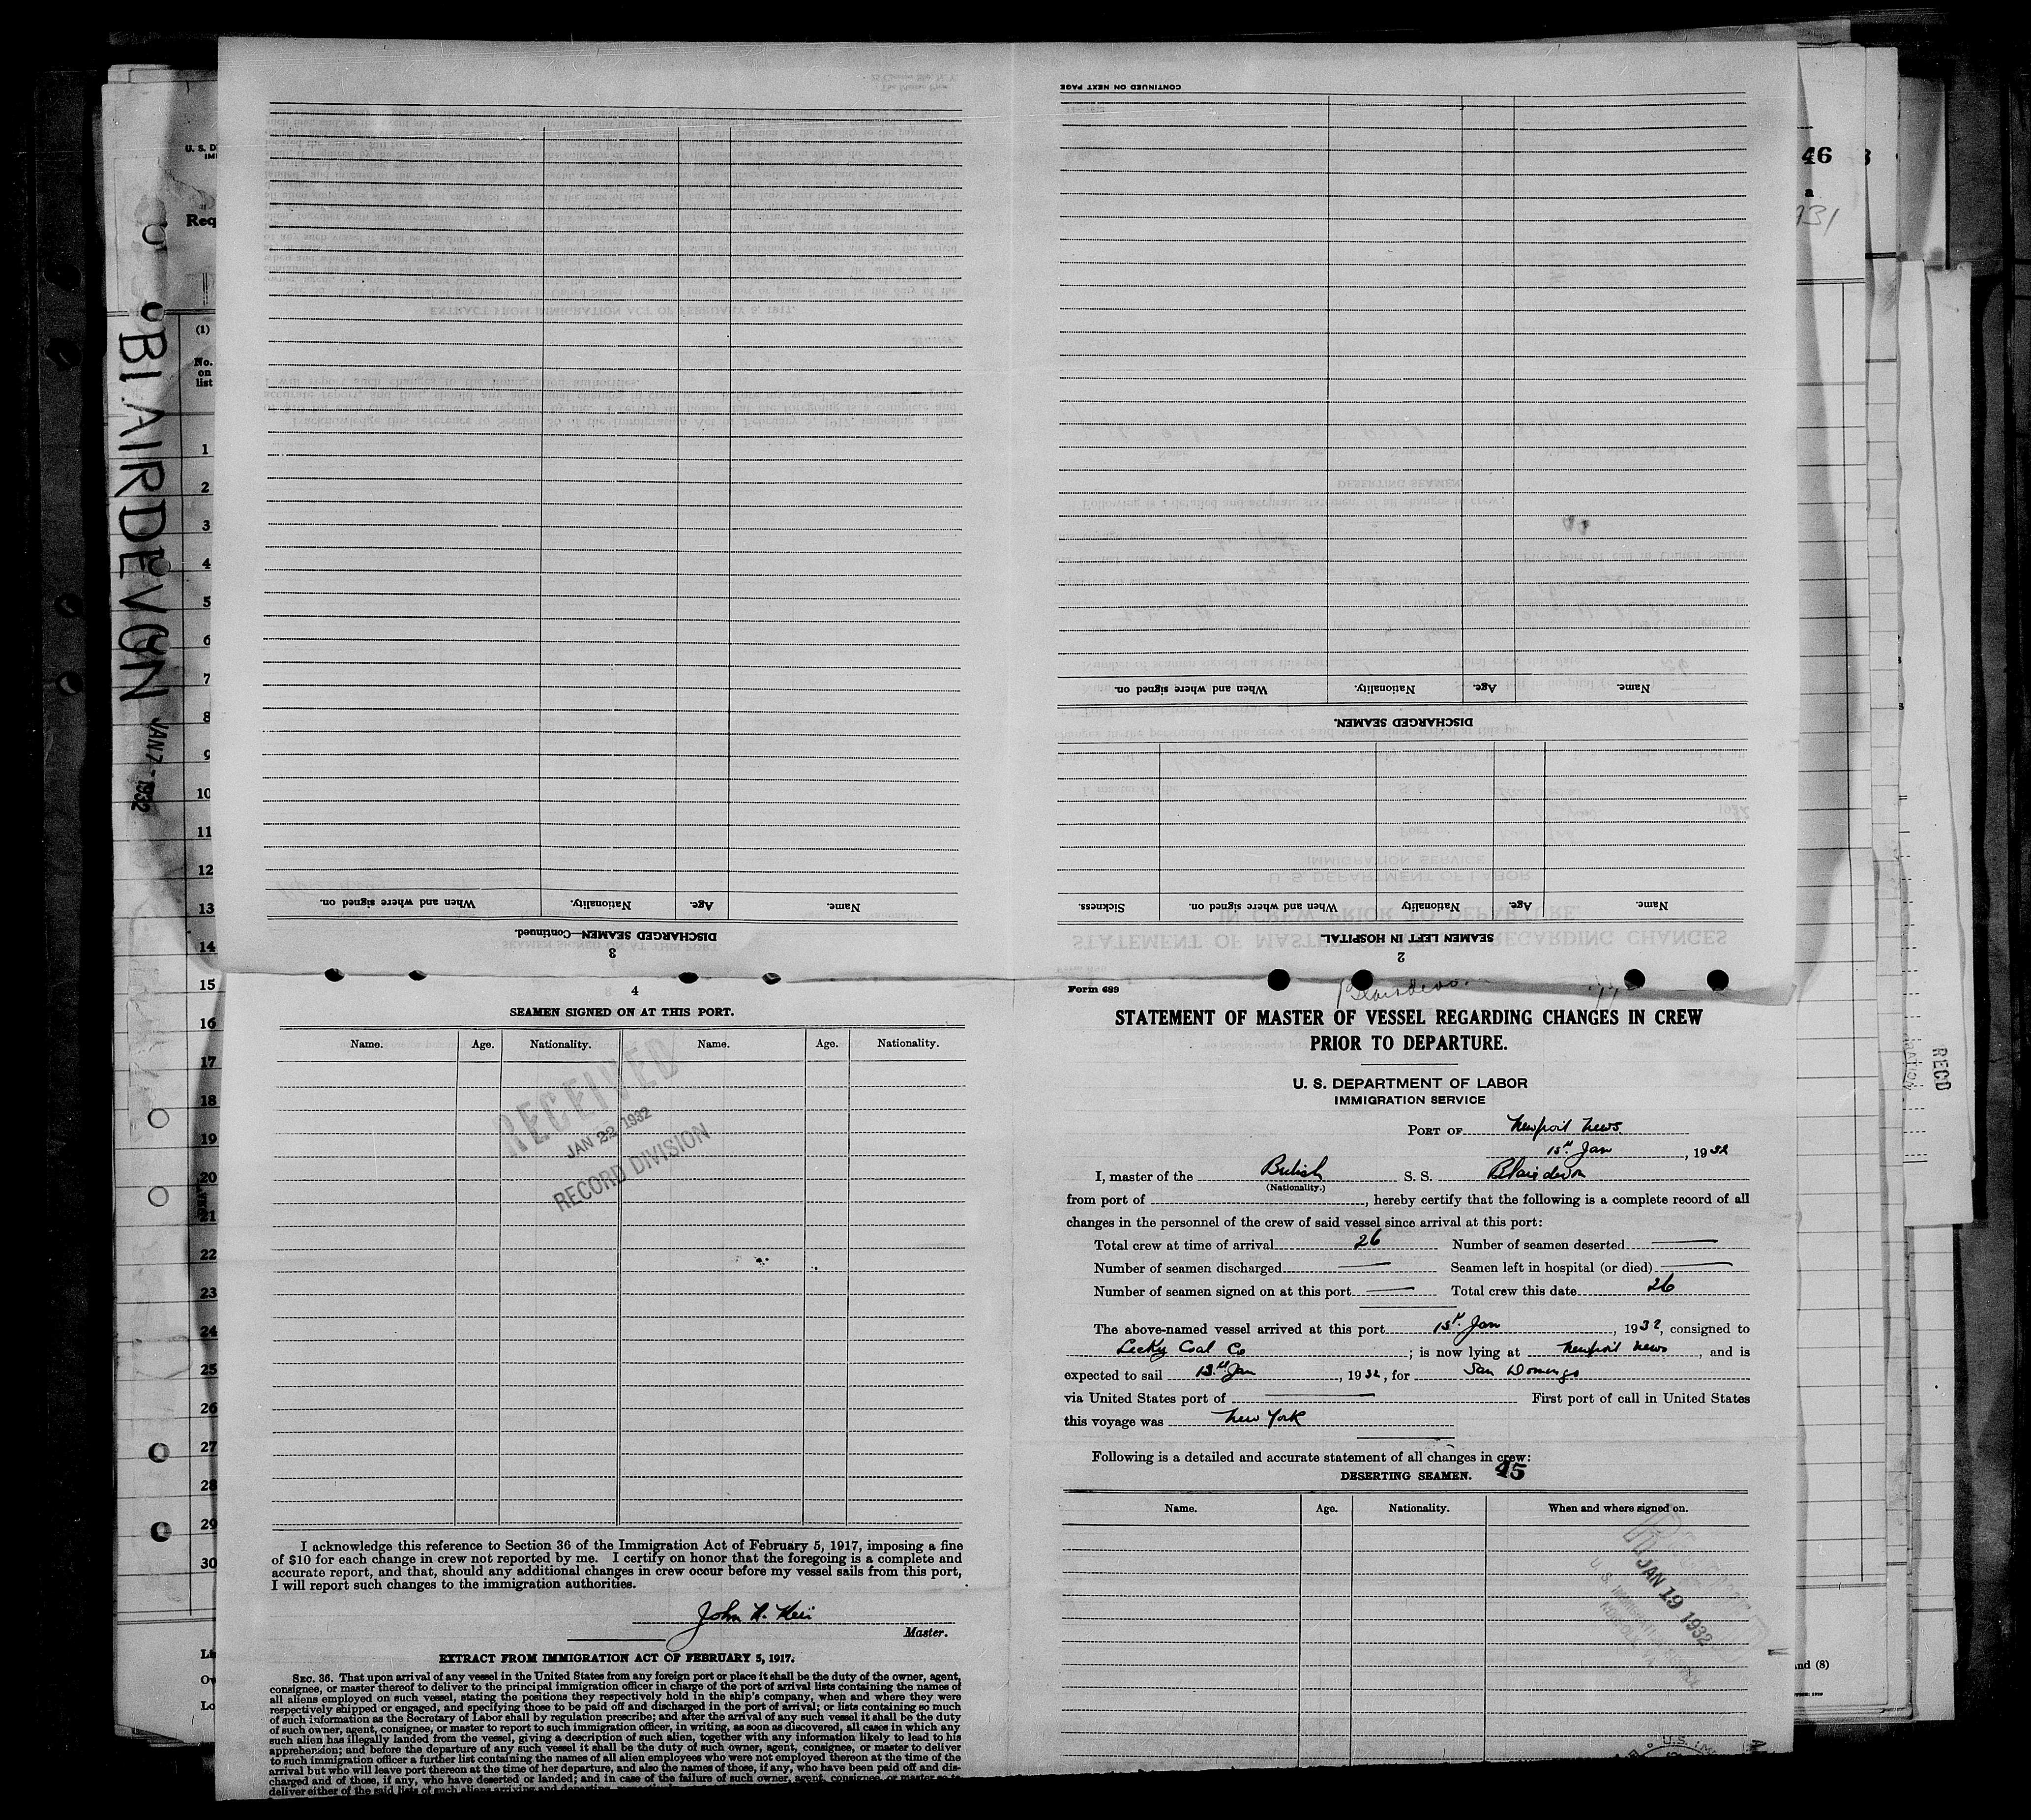 CONTINUED ON NEXT PAGE
Name. Age. Nationality. When and where signed on.
DISCHARGED SEAMEN.
Name. Age. Nationality When and where signed on. Sickness.
SEAMEN LEFT IN HOSPITAL.
2
Name. Age. Nationality. When and where signed on.
DISCHARGED SEAMEN—Continued.
3
BLAIRDEVON JAN 7 - 1932
U. S. D
IMI
Req
(1)
No.
on
list
1
2
3
4
5
6
7
8
9
10
11
12
13
14
15
16
17
18
19
20
21
22
23
24
25
26
27
28
29
30
46
a
RECD
and (8)
4
SEAMEN SIGNED ON AT THIS PORT.
Name. Age. Nationality. Name. Age. Nationality.
RECEIVED
JAN 22 1932
RECORD DIVISION
I acknowledge this reference to Section 36 of the Immigration Act of February 5, 1917, imposing a fine
of $10 for each change in crew not reported by me. I certify on honor that the foregoing is a complete and
accurate report, and that, should any additional changes in crew occur before my vessel sails from this port,
I will report such changes to the immigration authorities.
John
Master.
EXTRACT FROM IMMIGRATION ACT OF FEBRUARY 5, 1917.
SEC. 36. That upon arrival of any vessel in the United States from any foreign port or place it shall be the duty of the owner, agent,
consignee, or master thereof to deliver to the principal immigration officer in charge of the port of arrival lists containing the names of
all aliens employed on such vessel, stating the positions they respectively hold in the ship's company, when and where they were
respectively shipped or engaged, and specifying those to be paid off and discharged in the port of arrival; or lists containing so much
of such information as the Secretary of Labor shall by regulation prescribe; and after the arrival of any such vessel it shall be the duty
of such owner, agent, consignee, or master to report to such immigration officer, in writing, as soon as discovered, all cases in which any
such alien has illegally landed from the vessel, giving a description of such alien, together with any information likely to lead to his
apprehension; and before the departure of any such vessel it shall be the duty of such owner, agent, consignee, or master to deliver
to such immigration officer a further list containing the names of all alien employees who were not employed thereon at the time of the
arrival but who will leave port thereon at the time of her departure, and also the names of those, if any, who have been paid off and dis-
charged and of those, if any, who have deserted or landed; and in case of the failure of such owner, agent, consignee, or master so to
deliver either of the said lists of such aliens arriving and departing,
Form 689
STATEMENT OF MASTER OF VESSEL REGARDING CHANGES IN CREW
PRIOR TO DEPARTURE.
U. S. DEPARTMENT OF LABOR
IMMIGRATION SERVICE
PORT OF Newport News
15th Jan, 1932
I, master of the British S. S. Blairdevon
(Nationality.)
from port of , hereby certify that the following is a complete record of all
changes in the personnel of the crew of said vessel since arrival at this port:
Total crew at time of arrival 26 Number of seamen deserted —
Number of seamen discharged — Seamen left in hospital (or died) —
Number of seamen signed on at this port — Total crew this date 26
The above-named vessel arrived at this port 15th Jan, 1932, consigned to
Lecky Coal Co; is now lying at Newport News, and is
expected to sail Jan, 1932, for San Domingo
via United States port of — First port of call in United States
this voyage was New York
Following is a detailed and accurate statement of all changes in crew:
DESERTING SEAMEN. 45
Name. Age. Nationality. When and where signed on.
JAN 19 1932
U. S. IMMIGRATION SERVICE
NORFOLK, VA.